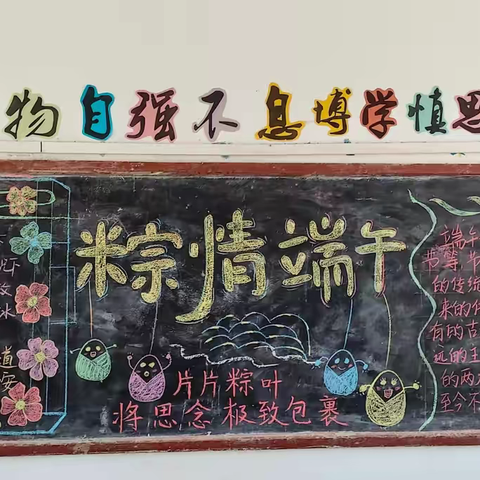 物 自强不 息博学慎思
粽情端午
片片粽叶
将思念极致包裹
道
安
端午
节等节
的传统
来的
有的古
远的主
的两
至今不